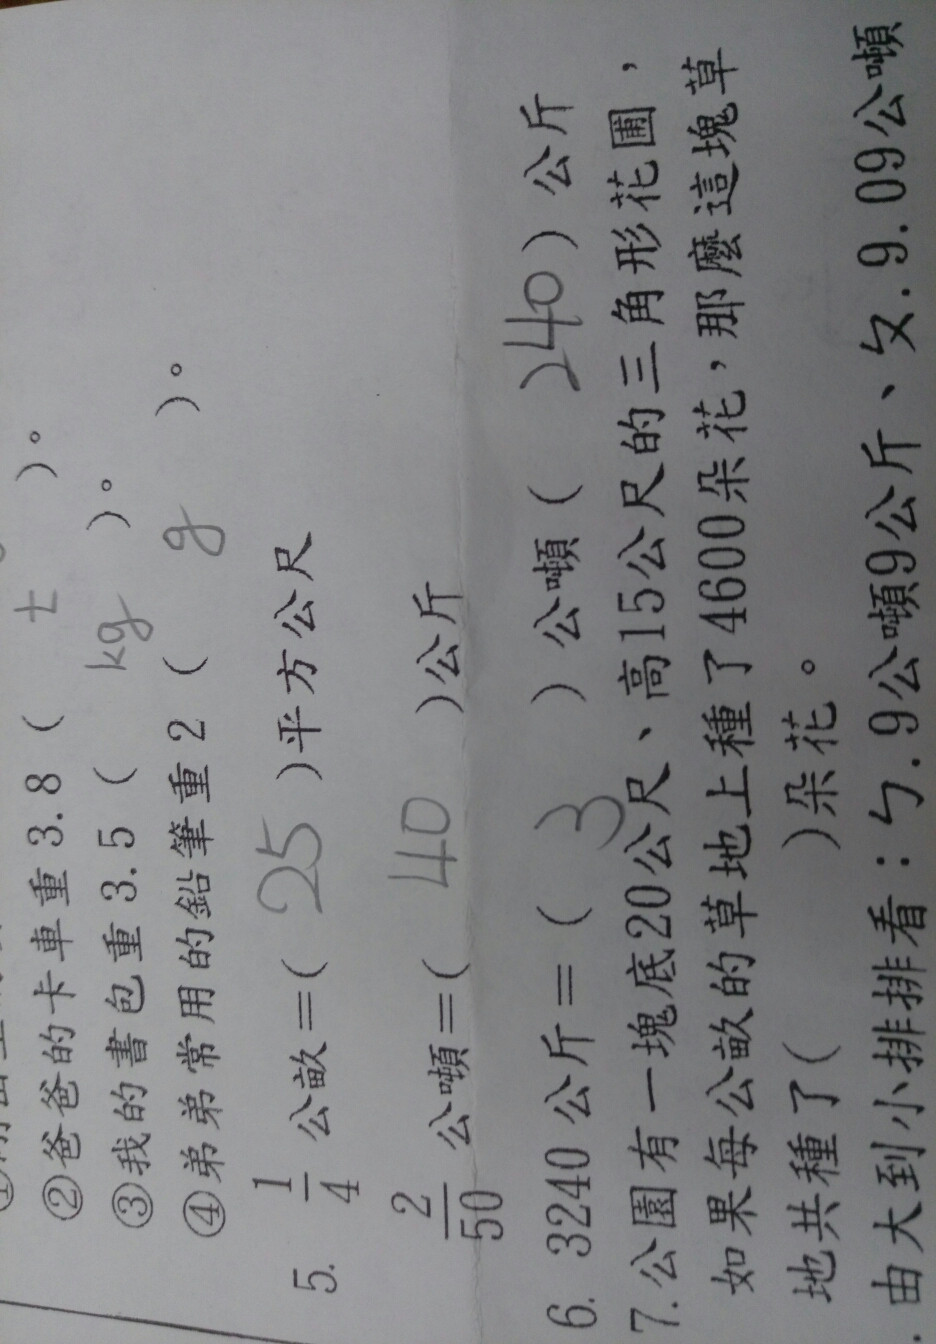 ②爸爸的卡車重3.8( t )。
③我的書包重3.5( kg )。
④弟弟常用的鉛筆重2( g )。
5. 1/4 公畝=( 25 )平方公尺
2/50 公噸=( 40 )公斤
6. 3240公斤=( 3 )公噸( 240 )公斤
7.公園有一塊底20公尺、高15公尺的三角形花圃,
如果每公畝的草地上種了4600朵花,那麼這塊草
地共種了( )朵花。
.由大到小排排看:ㄅ.9公噸9公斤、ㄆ.9.09公噸